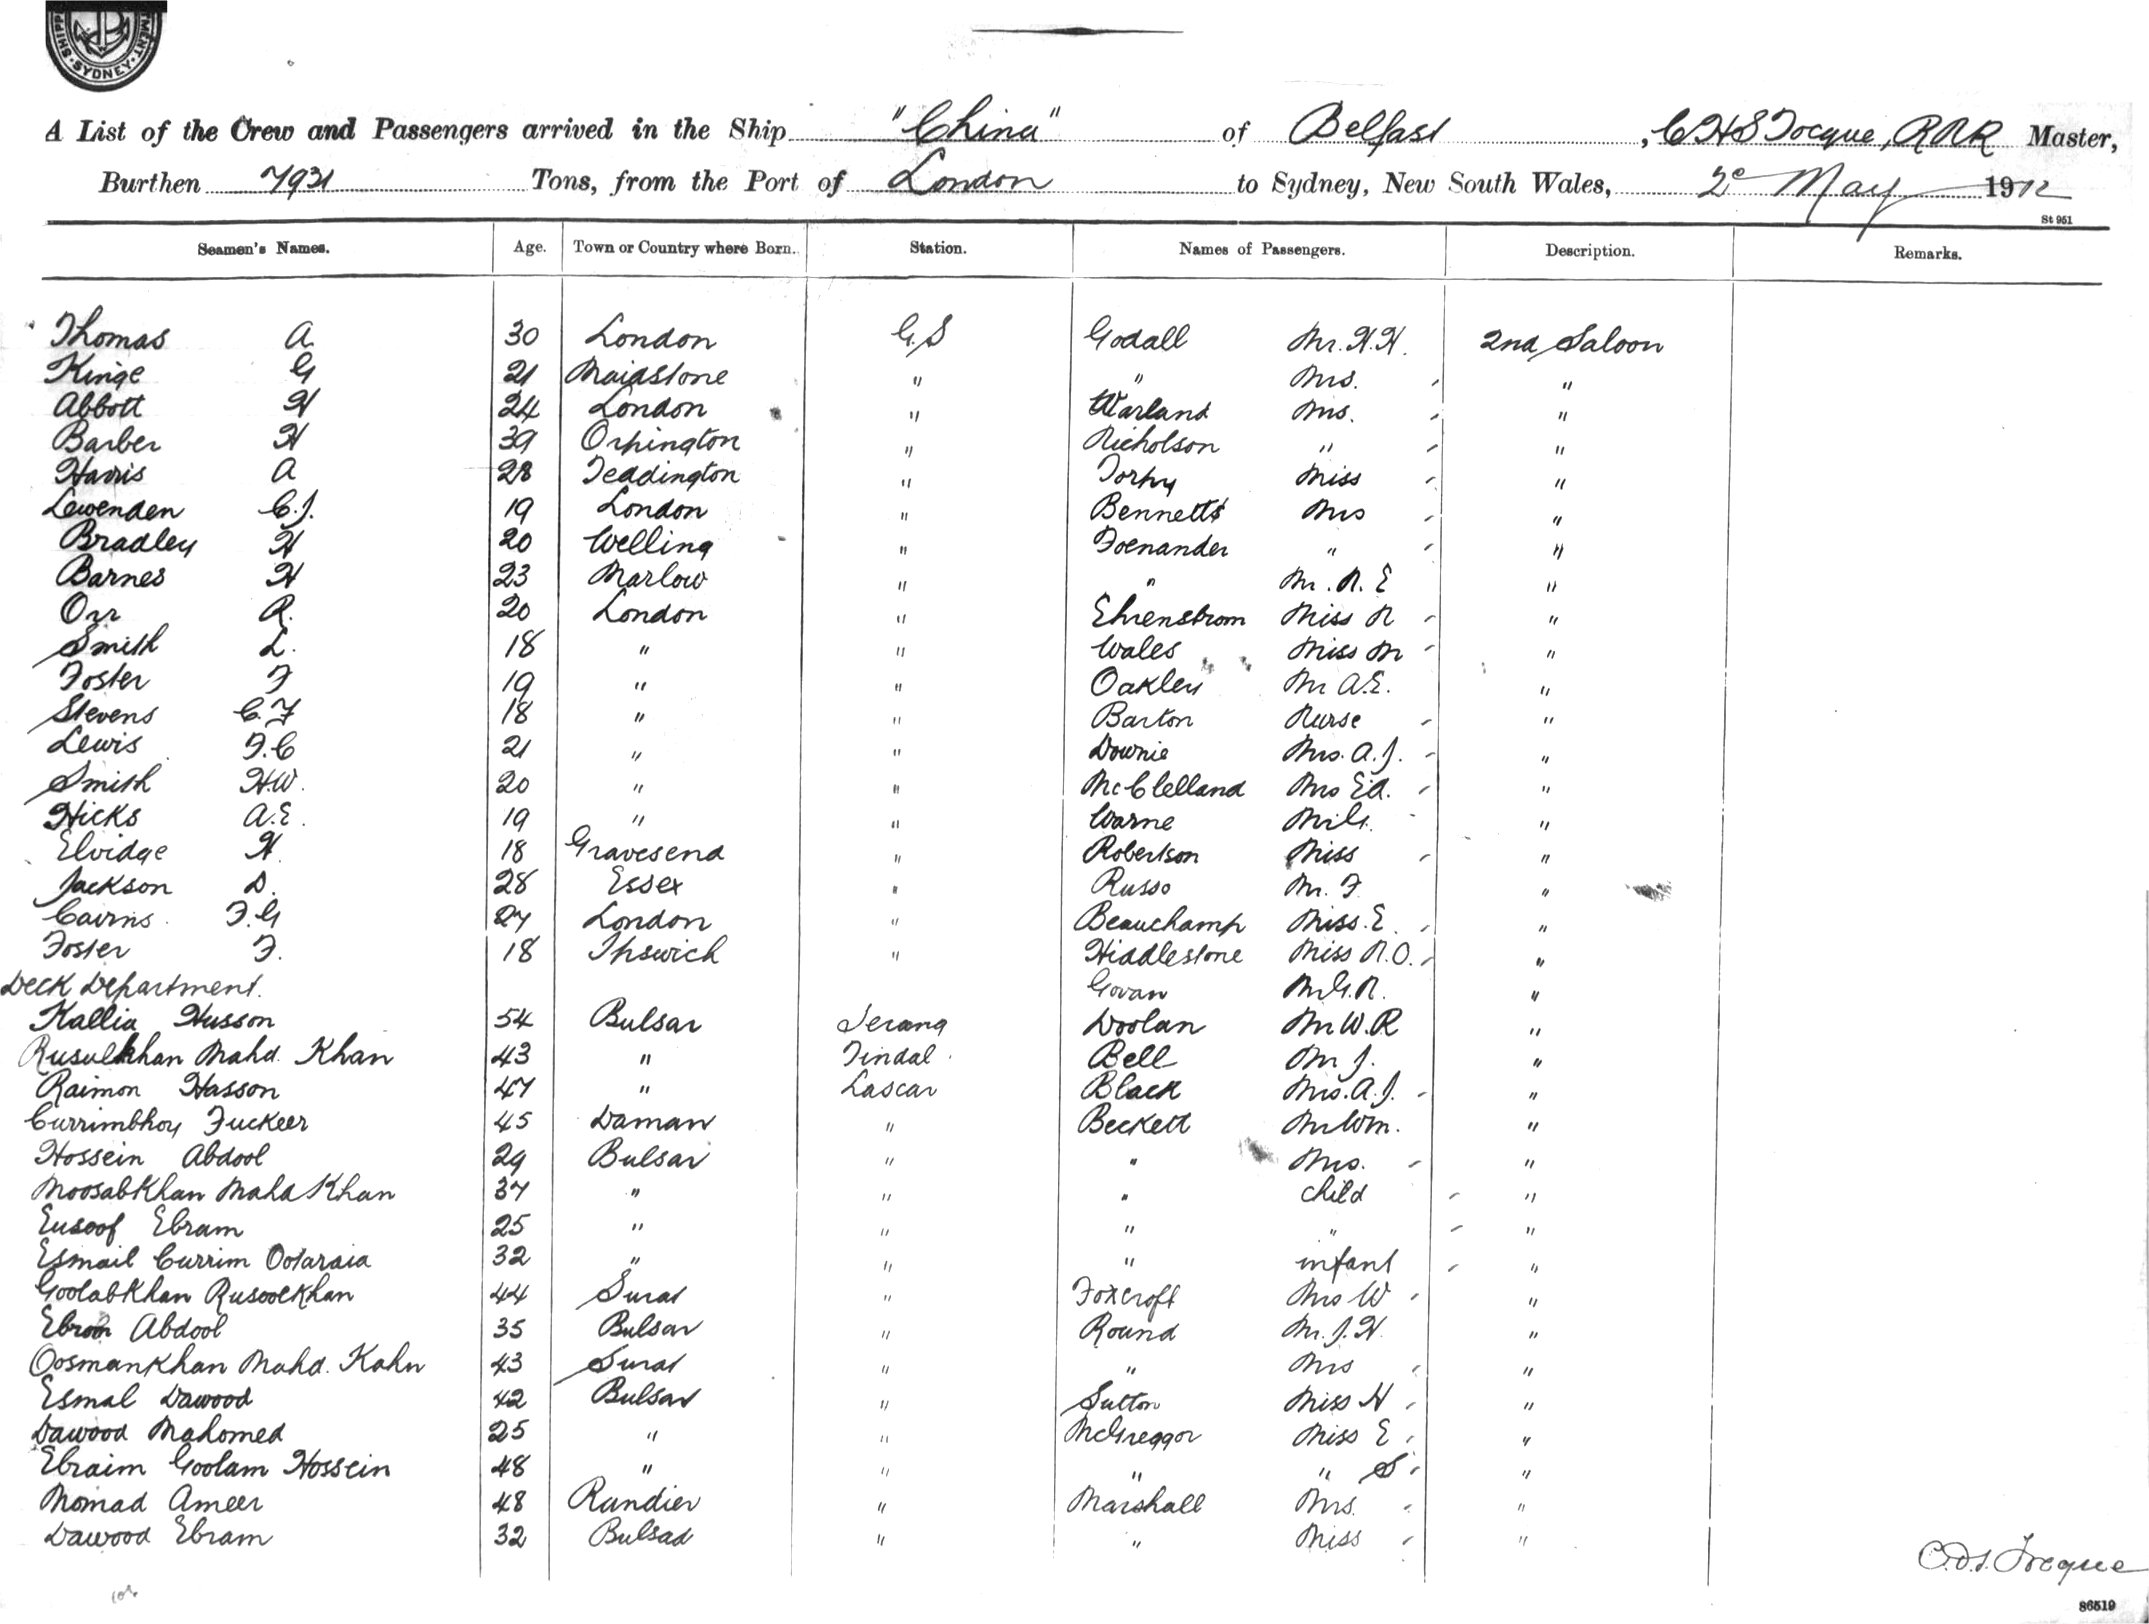 SHIPP MENT. SYDNEY.
A List of the Crew and Passengers arrived in the Ship "China" of Belfast, C H S Tocque, RNR Master,
Burthen 7931 Tons, from the Port of London to Sydney, New South Wales, 2e May 1912
St 951
Seamen's Names. Age. Town or Country where Born. Station. Names of Passengers. Description. Remarks.
Thomas A 30 London G.S Godall Mr. H.H. 2nd Saloon
Kinge G 21 Maidstone " " Mrs. "
Abbott H 24 London " Warland Mrs. "
Barber H 39 Orpington " Nicholson " "
Harris A 28 Teddington " Torpy Miss "
Lewenden C.J. 19 London " Bennetts Mrs "
Bradley H 20 Welling " Foenander " "
Barnes H 23 Marlow " " Mr. N. E "
Orr R. 20 London " Ehrenstrom Miss N "
Smith L. 18 " " Wales Miss M "
Foster F 19 " " Oakley Mr A.E. "
Stevens C.F 18 " " Barton Nurse "
Lewis F.C 21 " " Downie Mrs. A.J. "
Smith H.W. 20 " " McClelland Mrs Ed. "
Hicks A.E. 19 " " Warne "
Elvidge H. 18 Gravesend " Robertson Miss "
Jackson D. 28 Essex " Russo Mr. F "
Cairns F.G 27 London " Beauchamp Miss. E. "
Foster F. 18 Ipswich " Hiddlestone Miss N.O. "
Deck Department. Govan M G.N. "
Kallia Husson 54 Bulsar Serang Doolan Mr W.R "
Rusulkhan Mahd. Khan 43 " Tindal Bell Mr J. "
Raimon Hasson 47 " Lascar Black Mrs. A.J. "
Currimbhoy Fuckeer 45 Daman " Beckett Mr Wm. "
Hossein Abdool 29 Bulsar " " Mrs. "
Moosabkhan Mahd Khan 37 " " " child "
Eusoof Ebram 25 " " " " "
Esmail Currim Ootaraia 32 " " " infant "
Goolabkhan Rusoolkhan 44 Surat " Foxcroft Mrs W "
Ebram Abdool 35 Bulsar " Round Mr. J.H. "
Oosmankhan Mahd. Kahn 43 Surat " " Mrs "
Esmal Dawood 42 Bulsar " Sutton Miss H "
Dawood Mahomed 25 " " McGreggor Miss E "
Ebraim Goolam Hossein 48 " " " " S "
Momad Ameer 48 Randier " Marshall Mrs. "
Dawood Ebram 32 Bulsad " " Miss "
C.H.S. Tocque
86519